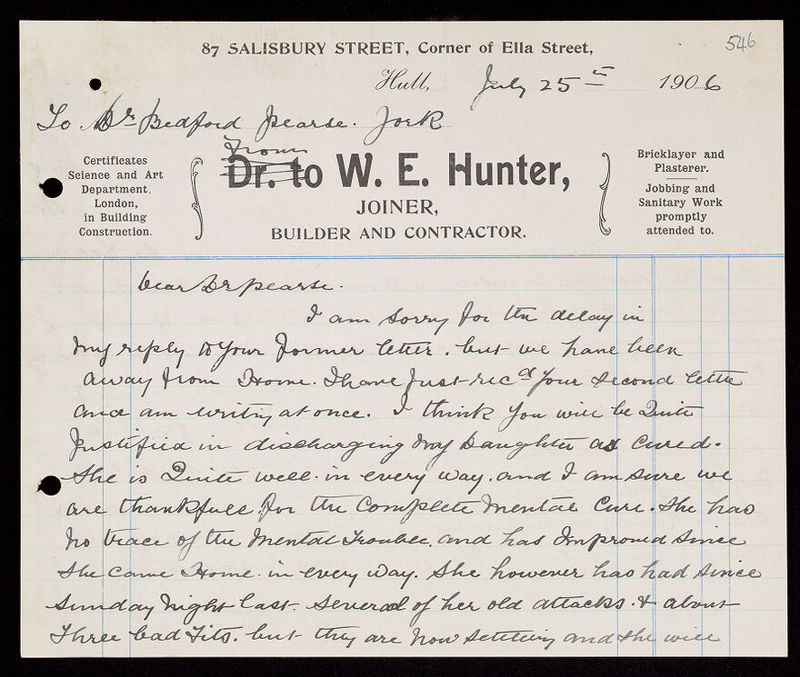 546
87 SALISBURY STREET, Corner of Ella Street,
Hull, July 25th 1906
To Dr Bedford Pearse. York
Certificates
Science and Art
Department,
London,
in Building
Construction.
from
Dr. to W. E. Hunter,
JOINER,
BUILDER AND CONTRACTOR.
Bricklayer and
Plasterer.
Jobbing and
Sanitary Work
promptly
attended to.
Dear Dr Pearse.
I am sorry for the delay in
my reply to your former letter. but we have been
away from Home. I have Just recd your second letter
and am writing at once. I think you will be Quite
Justified in discharging my Daughter as cured.
She is Quite well. in every way. and I am sure we
are thankfull for the Complete Mental Cure. She has
no trace of the Mental Trouble. and has Improved since
She came Home. in every way. She however has had since
Sunday Night last. several of her old attacks. & about
Three bad Fits. but they are now settling and she will